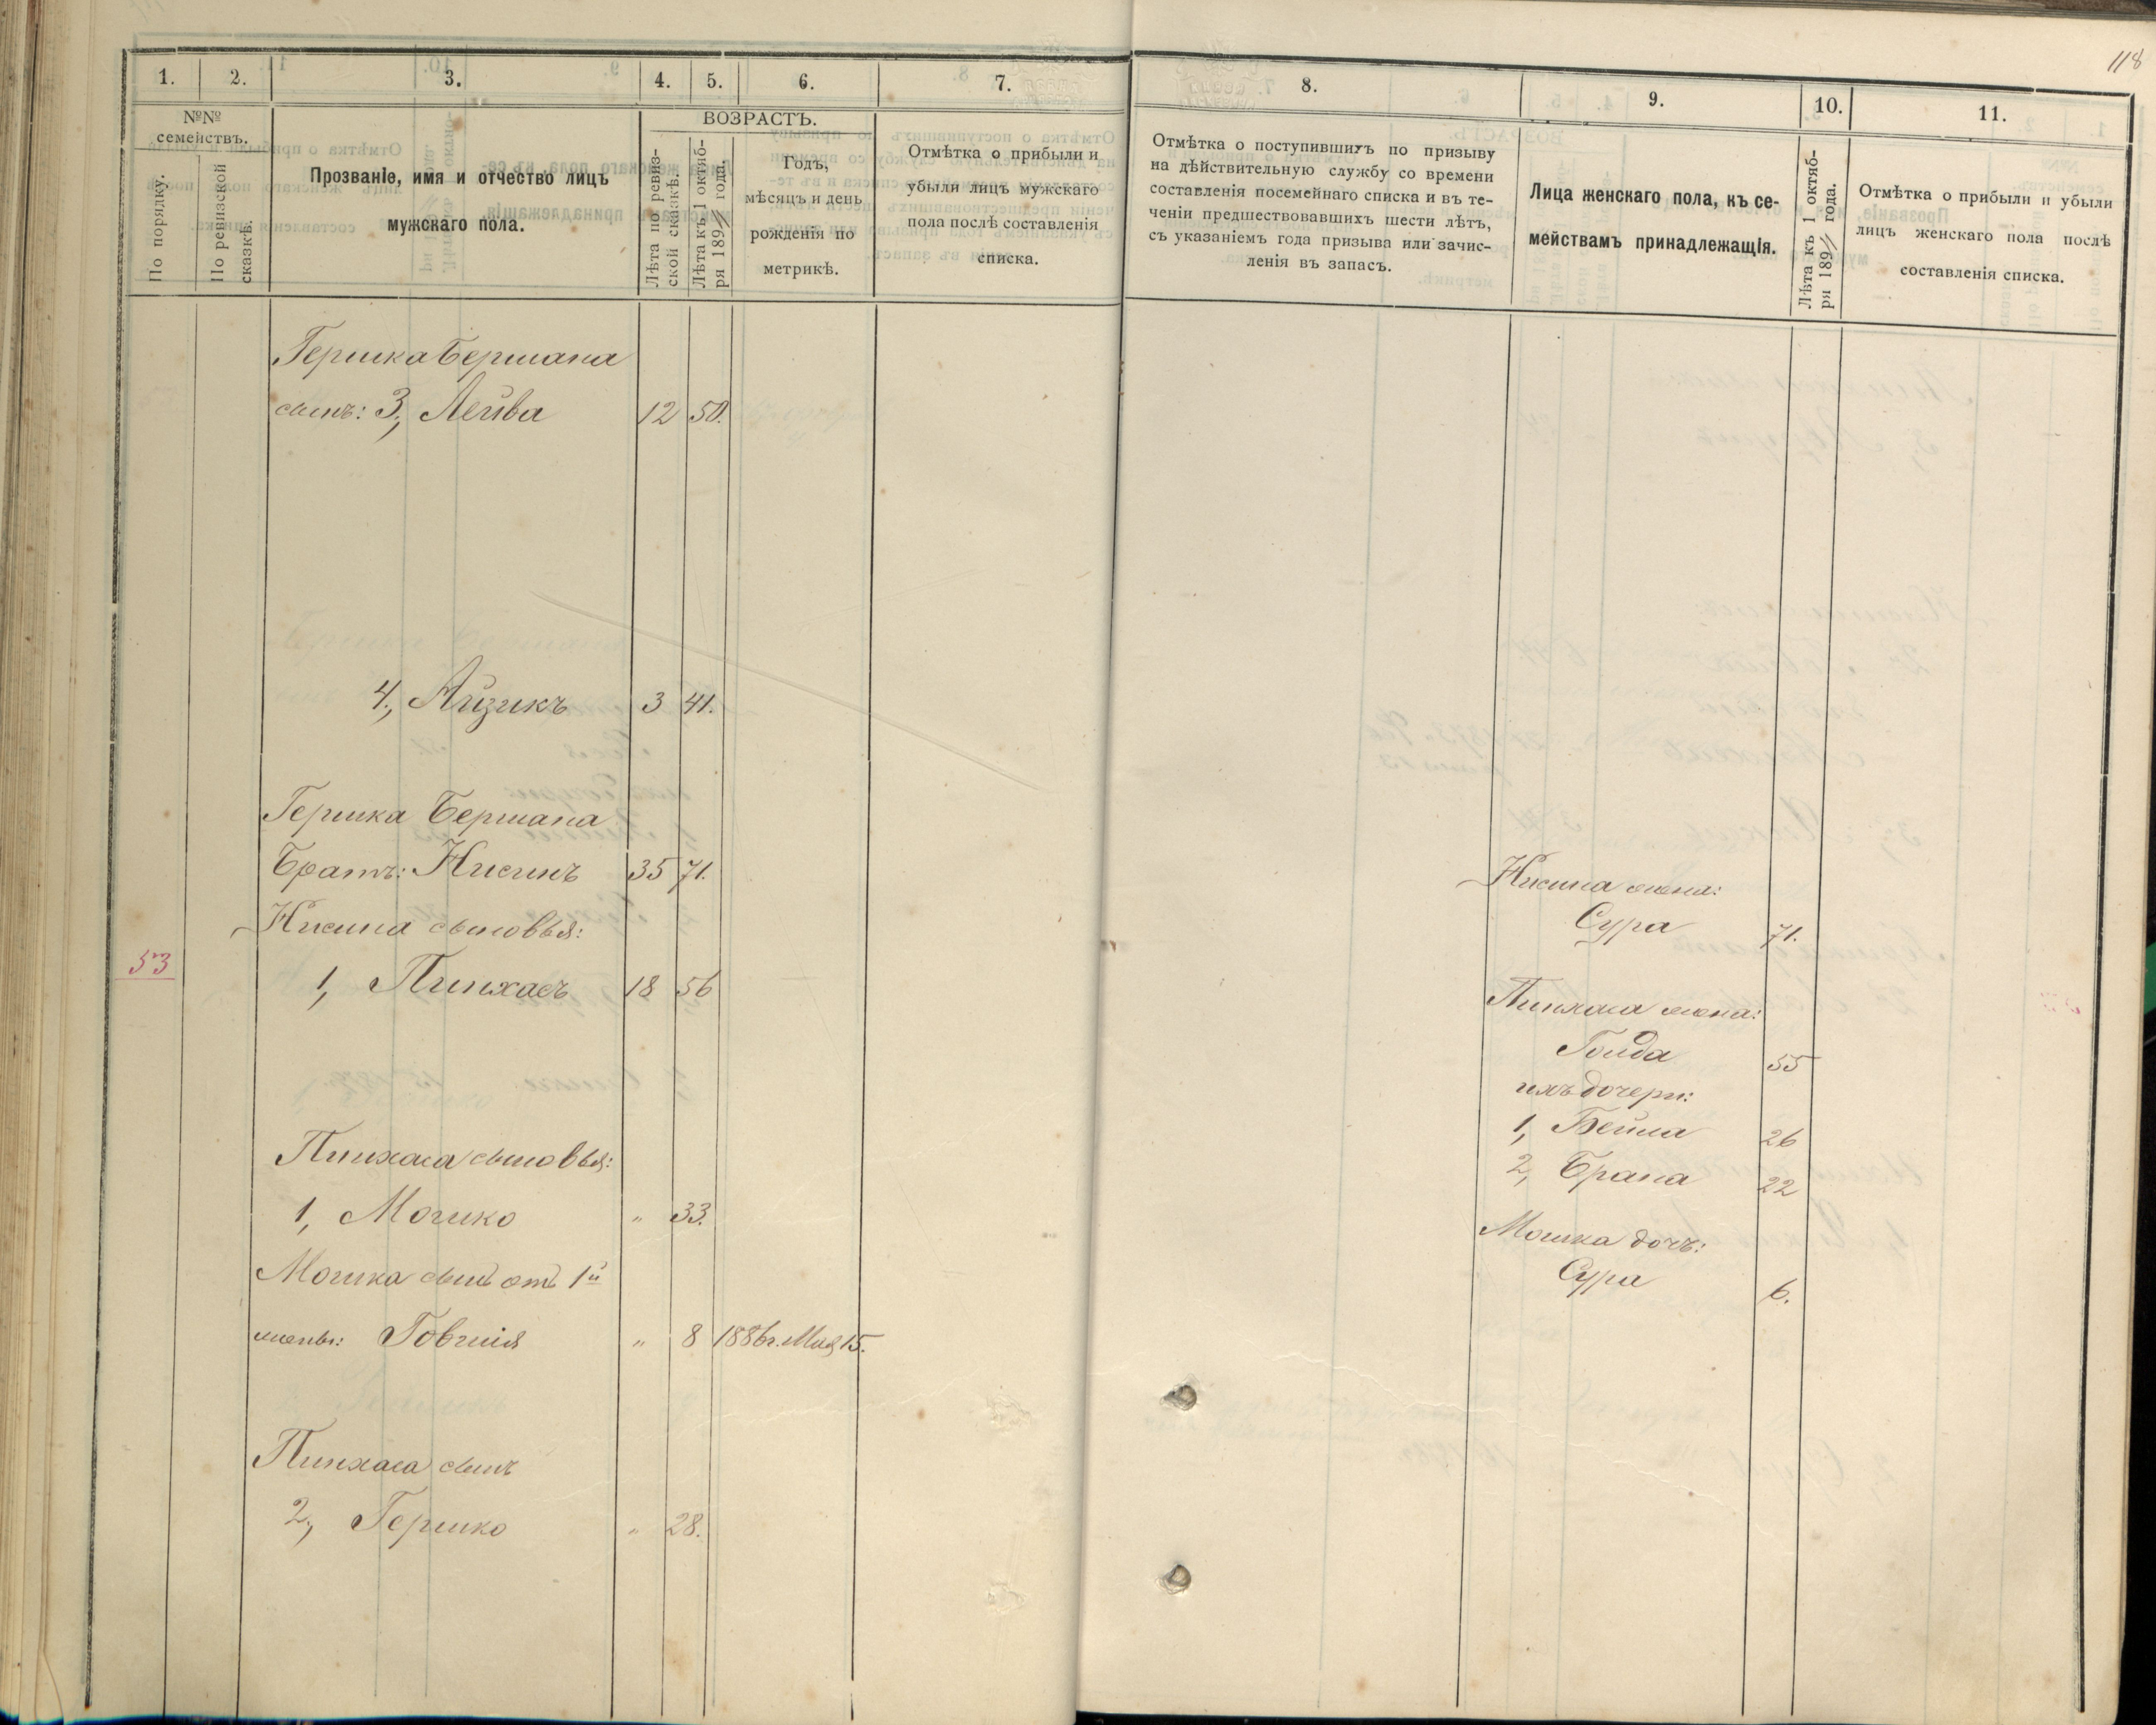 118
1. 2. 3. 4. 5. 6. 7. 8. 9. 10. 11.
№№ семействъ.
По порядку.
По ревизской сказкѣ.
Прозваніе, имя и отчество лицъ
мужскаго пола.
ВОЗРАСТЪ.
Лѣта по ревиз-
ской сказкѣ.
Лѣта къ 1 октяб-
ря 189 года.
Годъ,
мѣсяцъ и день
рожденія по
метрикѣ.
Отмѣтка о прибыли и
убыли лицъ мужскаго
пола послѣ составленія
списка.
Отмѣтка о поступившихъ по призыву
на дѣйствительную службу со времени
составленія посемейнаго списка и въ те-
ченіи предшествовавшихъ шести лѣтъ,
съ указаніемъ года призыва или зачис-
ленія въ запасъ.
Лица женскаго пола, къ се-
мействамъ принадлежащія.
Лѣта къ 1 октяб-
ря 189 года.
Отмѣтка о прибыли и убыли
лицъ женскаго пола послѣ
составленія списка.
Гершка Бершана
сынъ: 3, Лейва 12 50.
4, Айзикъ 3 41.
Гершка Бершана
Братъ: Нисинъ 35 71.
Нисина сыновья:
53
1, Пинхасъ 18 56
Пинхаса сыновья:
1, Мошко " 33.
Мошка сынъ отъ 1й
жены: Говшія " 8 1886г. Мая 15.
Пинхаса сынъ
2, Гершко " 28.
Нисина жена:
Сура 71.
Пинхаса жена:
Голда 55
ихъ дочери:
1, Бейла 26
2, Брана 22
Мошка дочь:
Сура 6.